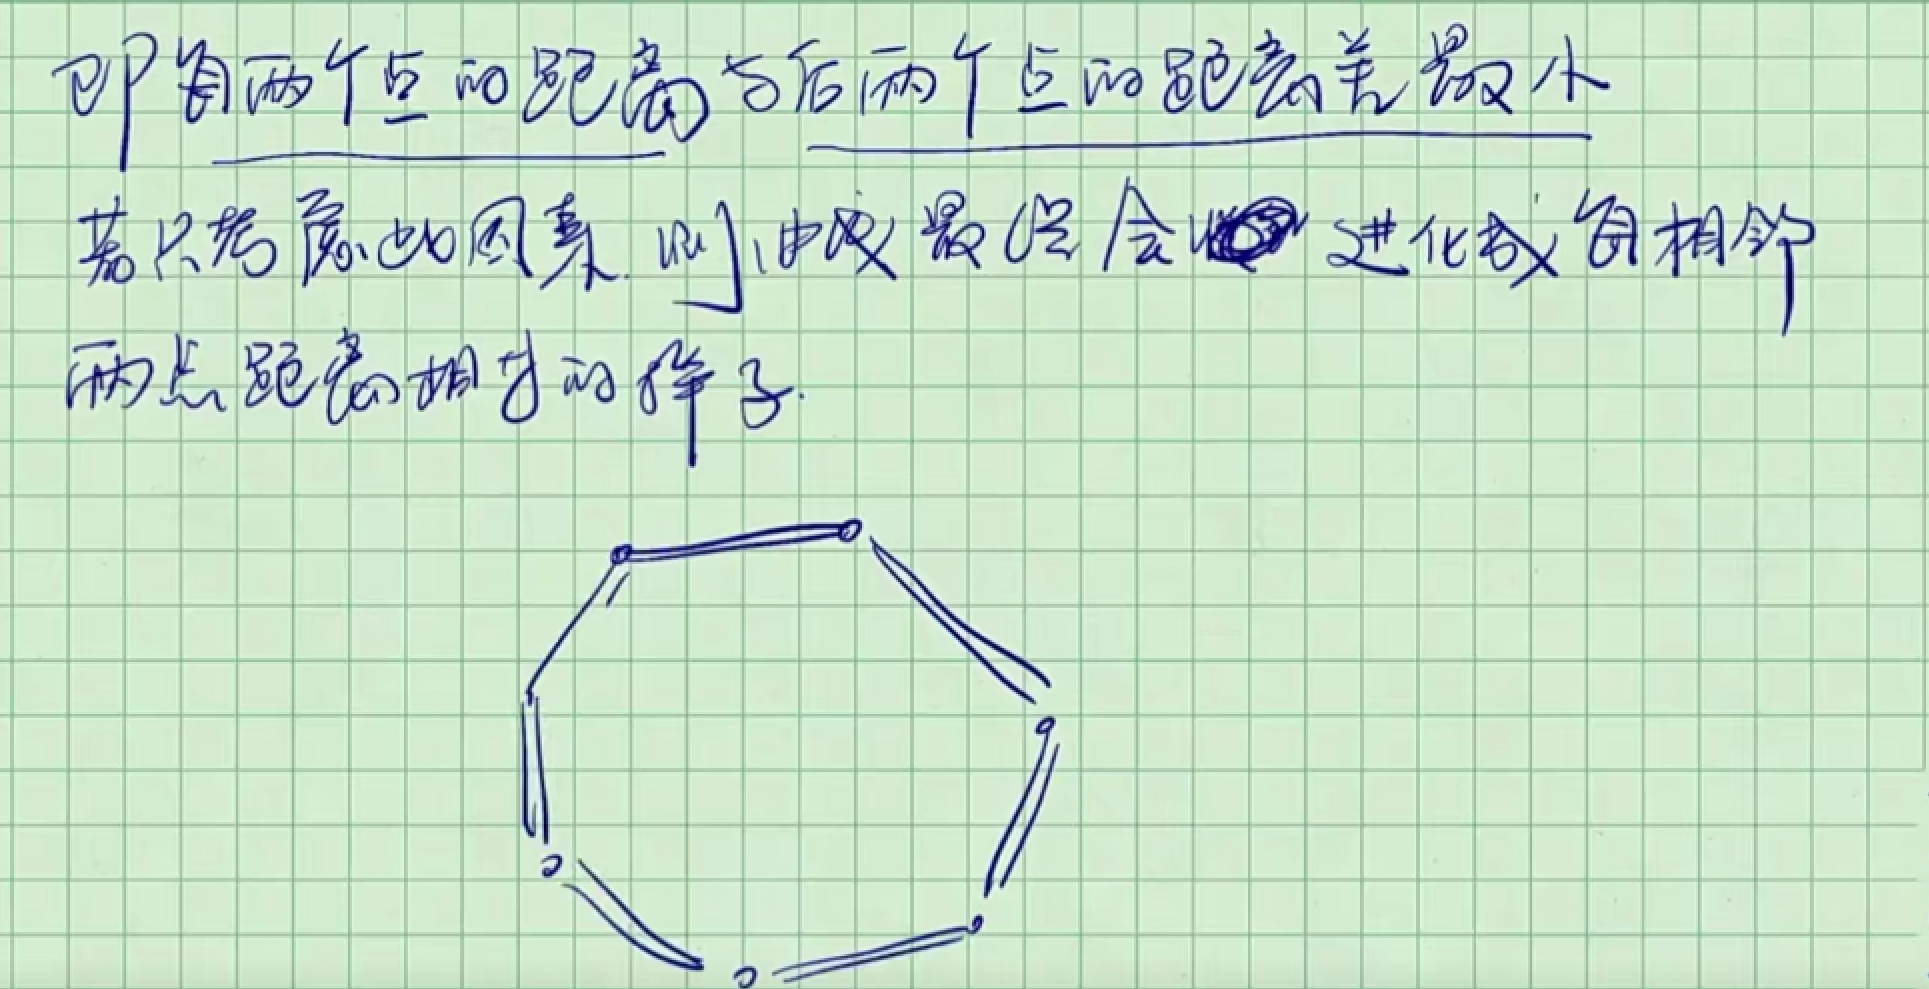 即每两个点的距离与后两个点的距离差最小
若只考虑此因素.则曲线最终会进化成每相邻
两点距离相等的样子.